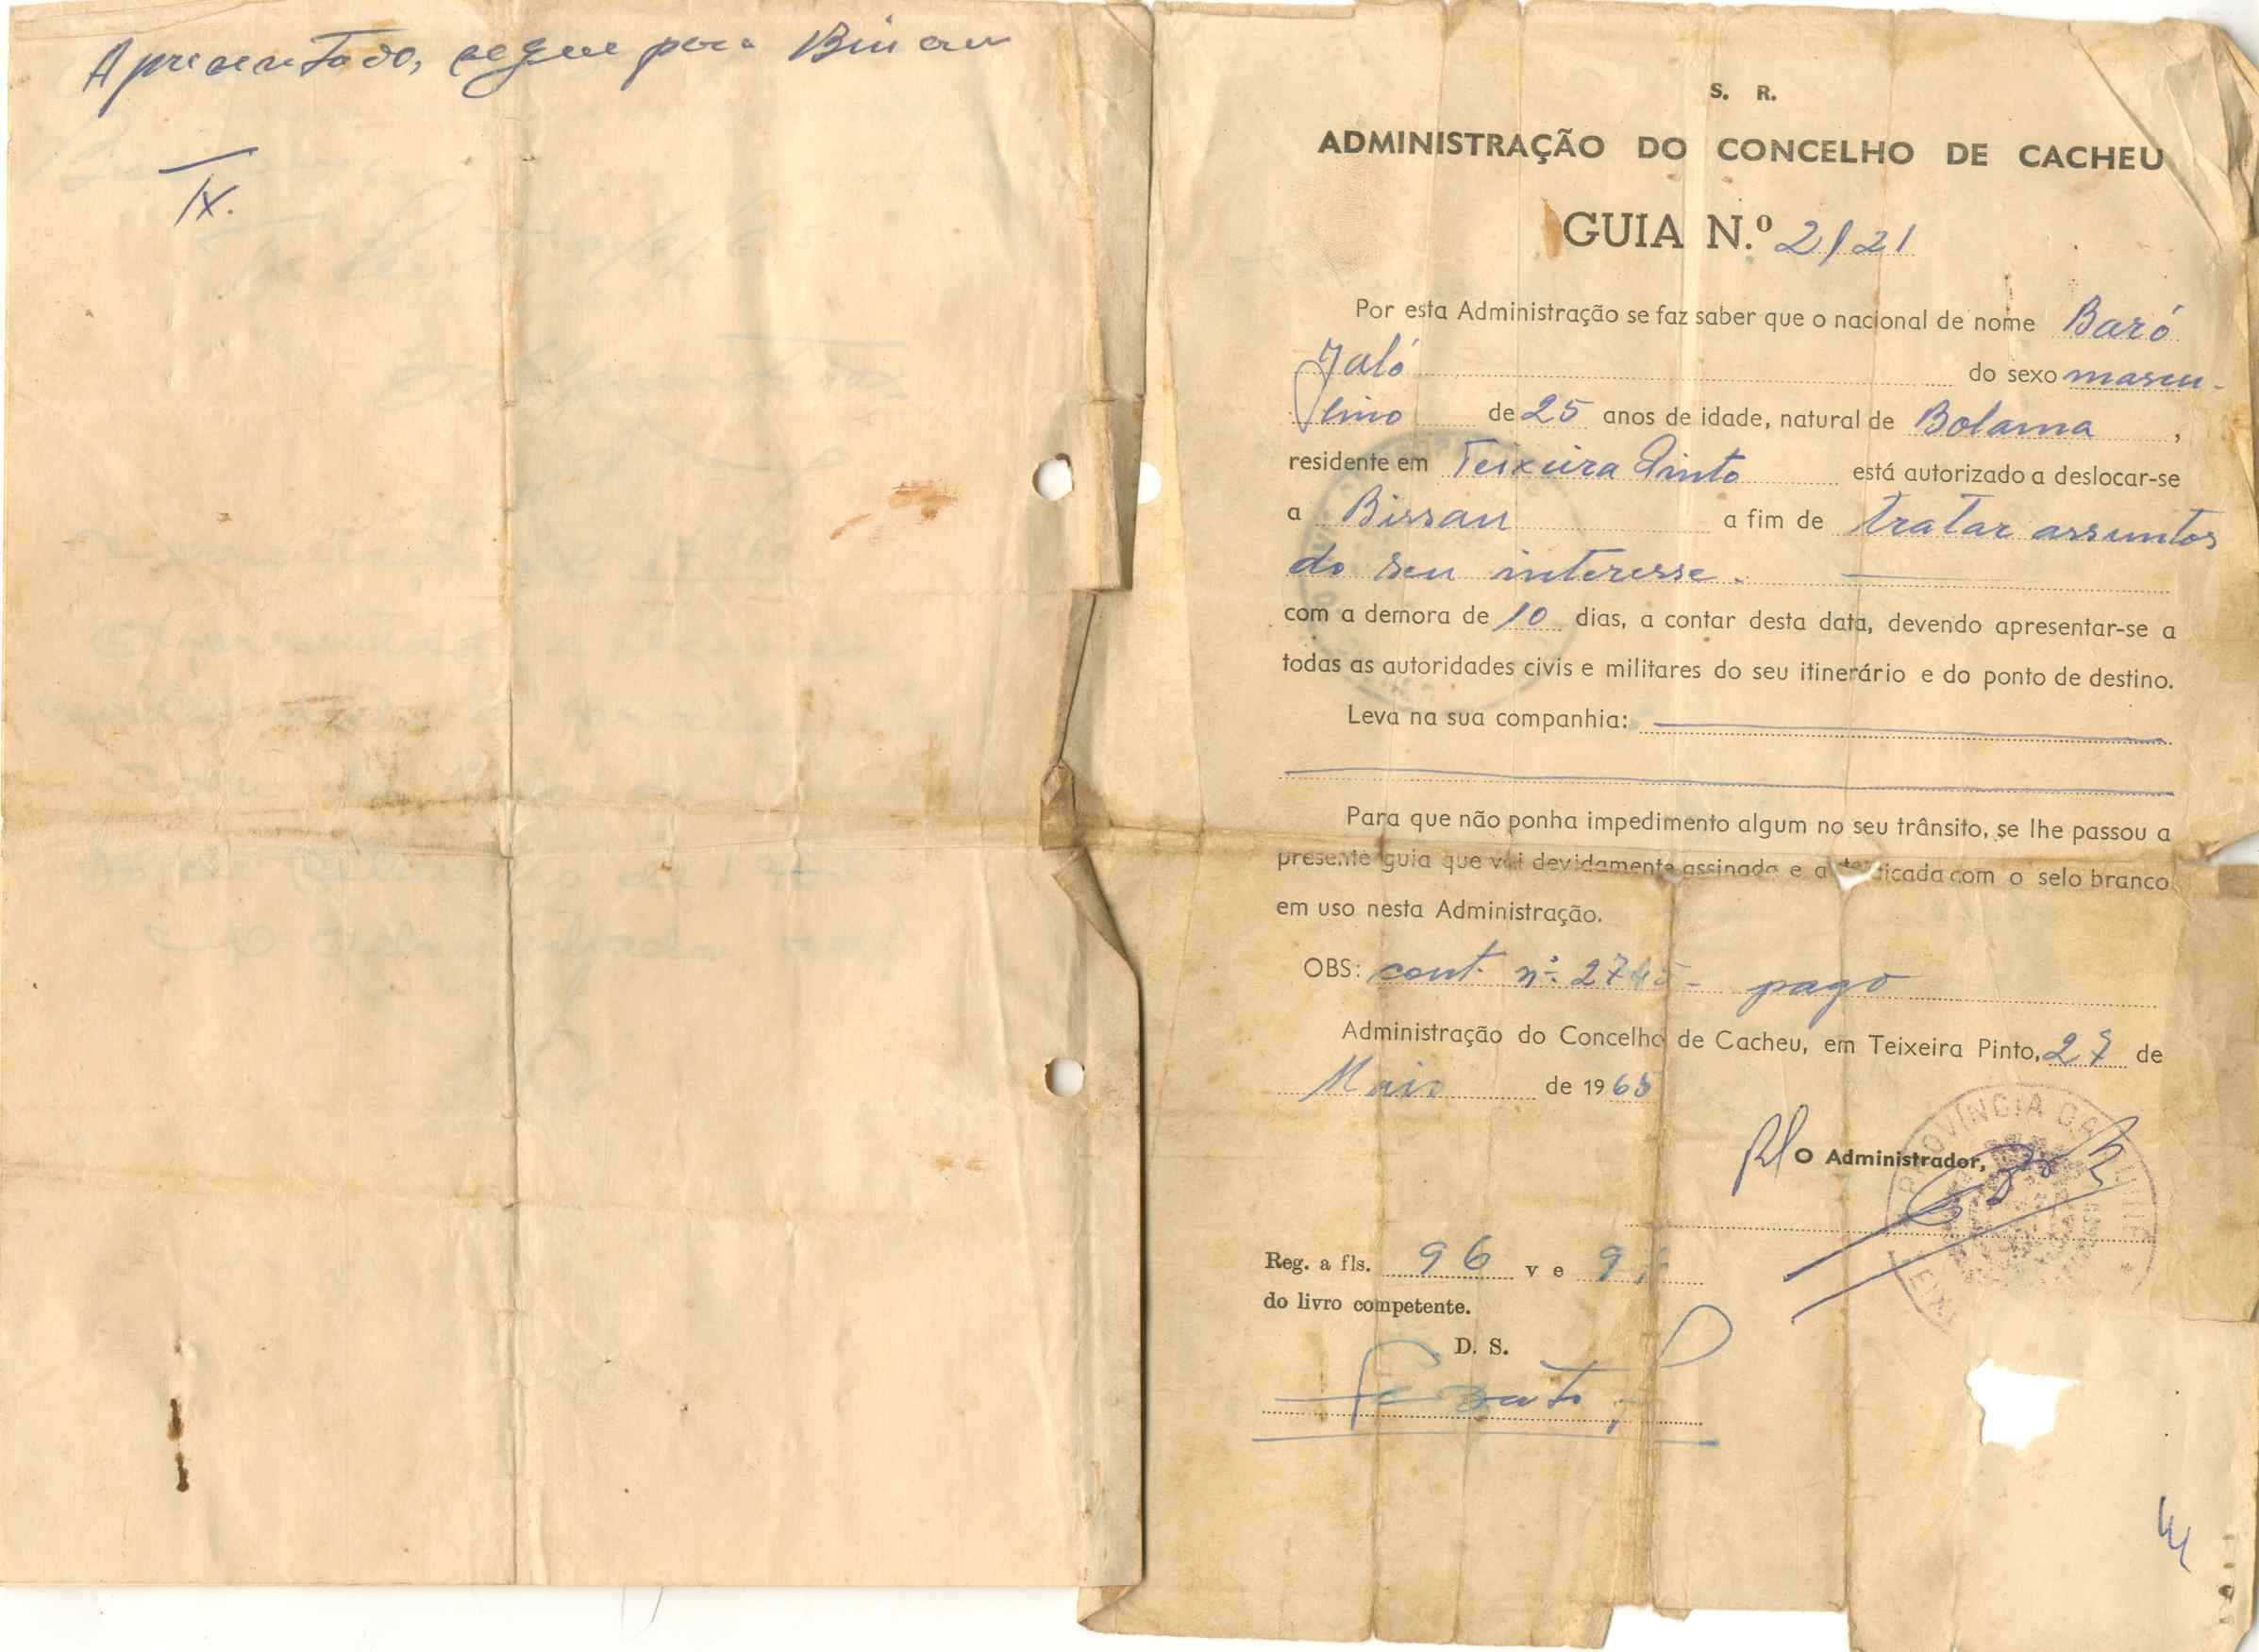 Apresentado, segue para Bissau
IX.
S. R.
ADMINISTRAÇÃO DO CONCELHO DE CACHEU
GUIA N.º 2/21
Por esta Administração se faz saber que o nacional de nome Baró
Jaló do sexo mascu-
lino de 25 anos de idade, natural de Bolama ,
residente em Teixeira Pinto está autorizado a deslocar-se
a Bissau a fim de tratar assuntos
do seu interesse.
com a demora de 10 dias, a contar desta data, devendo apresentar-se a
todas as autoridades civis e militares do seu itinerário e do ponto de destino.
Leva na sua companhia:
Para que não ponha impedimento algum no seu trânsito, se lhe passou a
presente guia que vai devidamente assinada e autenticada com o selo branco
em uso nesta Administração.
OBS: cont. nº 2745 - pago
Administração do Concelho de Cacheu, em Teixeira Pinto, 27 de
Maio de 1968
Pl O Administrador,
PROVÍNCIA DA GUINÉ
Reg. a fls. 96 v e
do livro competente.
D. S.